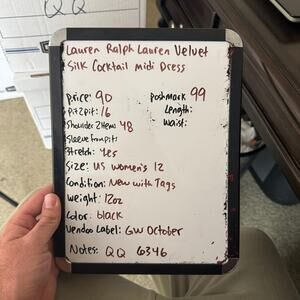 QQ
Lauren Ralph Lauren Velvet
Silk Cocktail Midi Dress
Price: 90
Poshmark 99
Pit2pit: 16
Length:
Shoulder2Hem: 48
Waist:
Sleeve from pit:
Stretch: Yes
Size: US Women's 12
Condition: New with Tags
Weight: 12oz
Color: black
Vendoo Label: GW October
Notes: QQ 6346